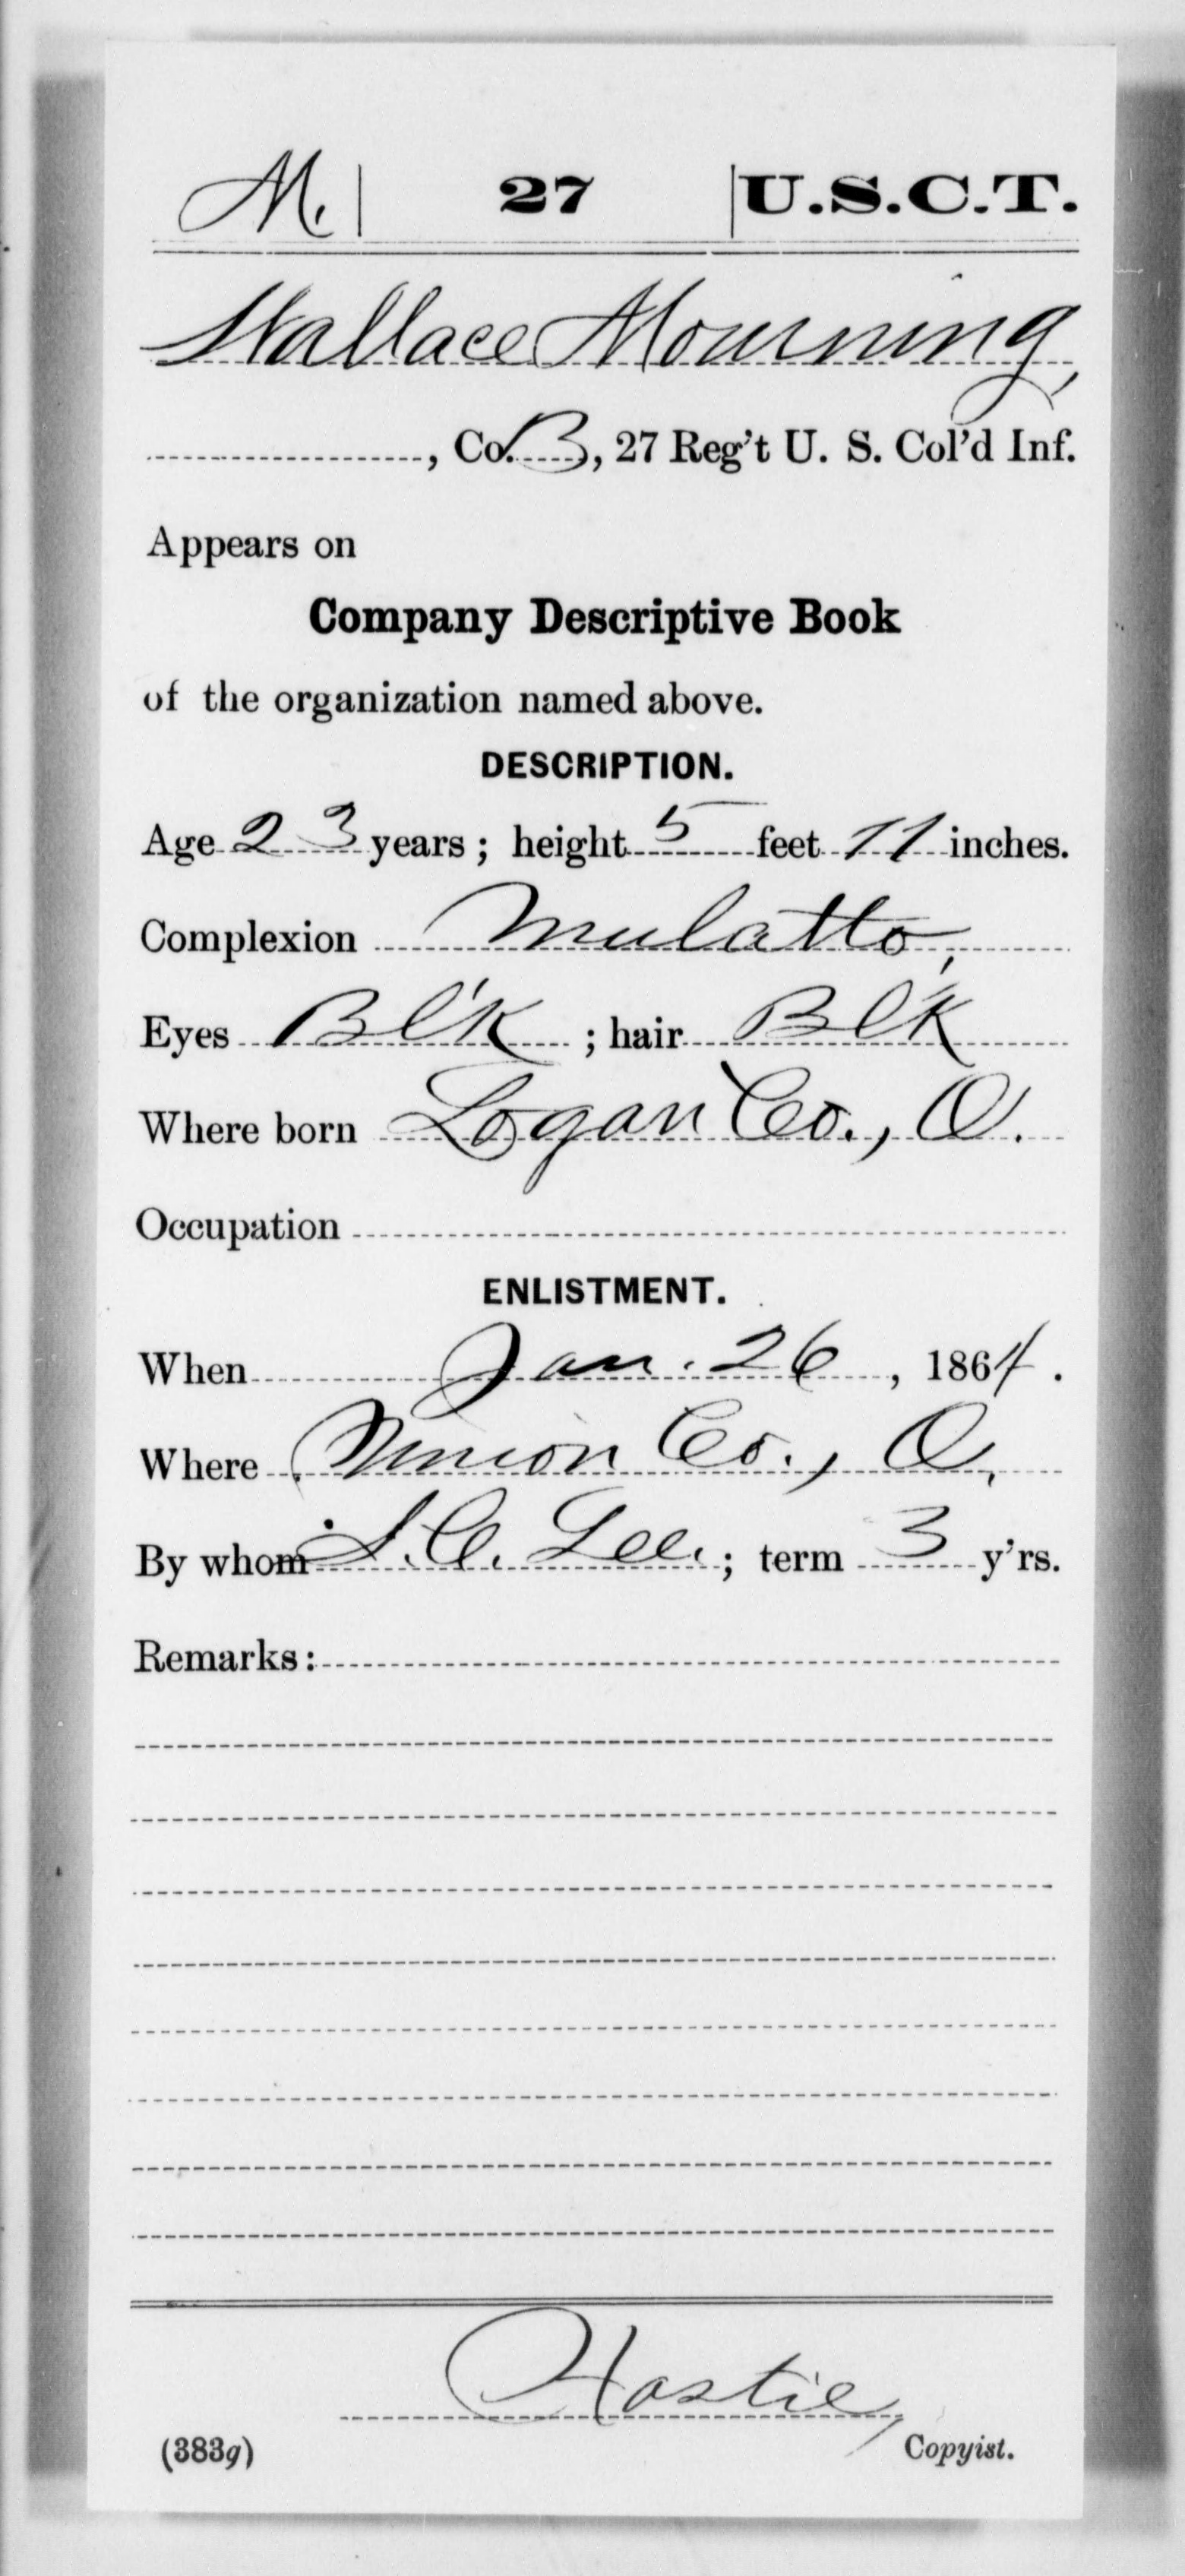 M. 27 U.S.C.T.
Wallace Mourning,
, Co. B, 27 Reg't U. S. Col'd Inf.
Appears on
Company Descriptive Book
of the organization named above.
DESCRIPTION.
Age 23 years; height 5 feet 11 inches.
Complexion Mulatto,
Eyes Bl'k ; hair Bl'k
Where born Logan Co., O.
Occupation
ENLISTMENT.
When Jan. 26, 1864.
Where Union Co., O,
By whom Lee; term 3 y'rs.
Remarks:
Hastie,
(383g) Copyist.